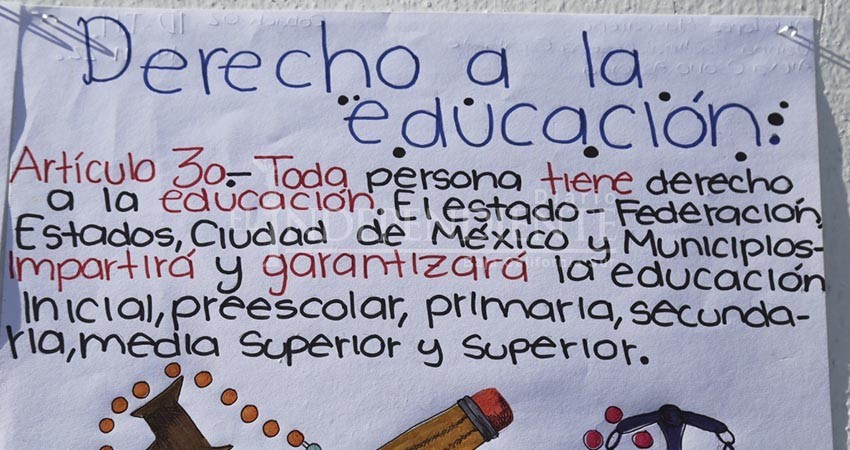 Derecho a la
educación:
Artículo 3o.- Toda persona tiene derecho
a la educación. El estado - Federación,
Estados, Ciudad de México y Municipios-
Impartirá y garantizará la educación
Inicial, preescolar, primaria, secunda-
ria, media superior y superior.
Diario
EL INDEPENDIENTE